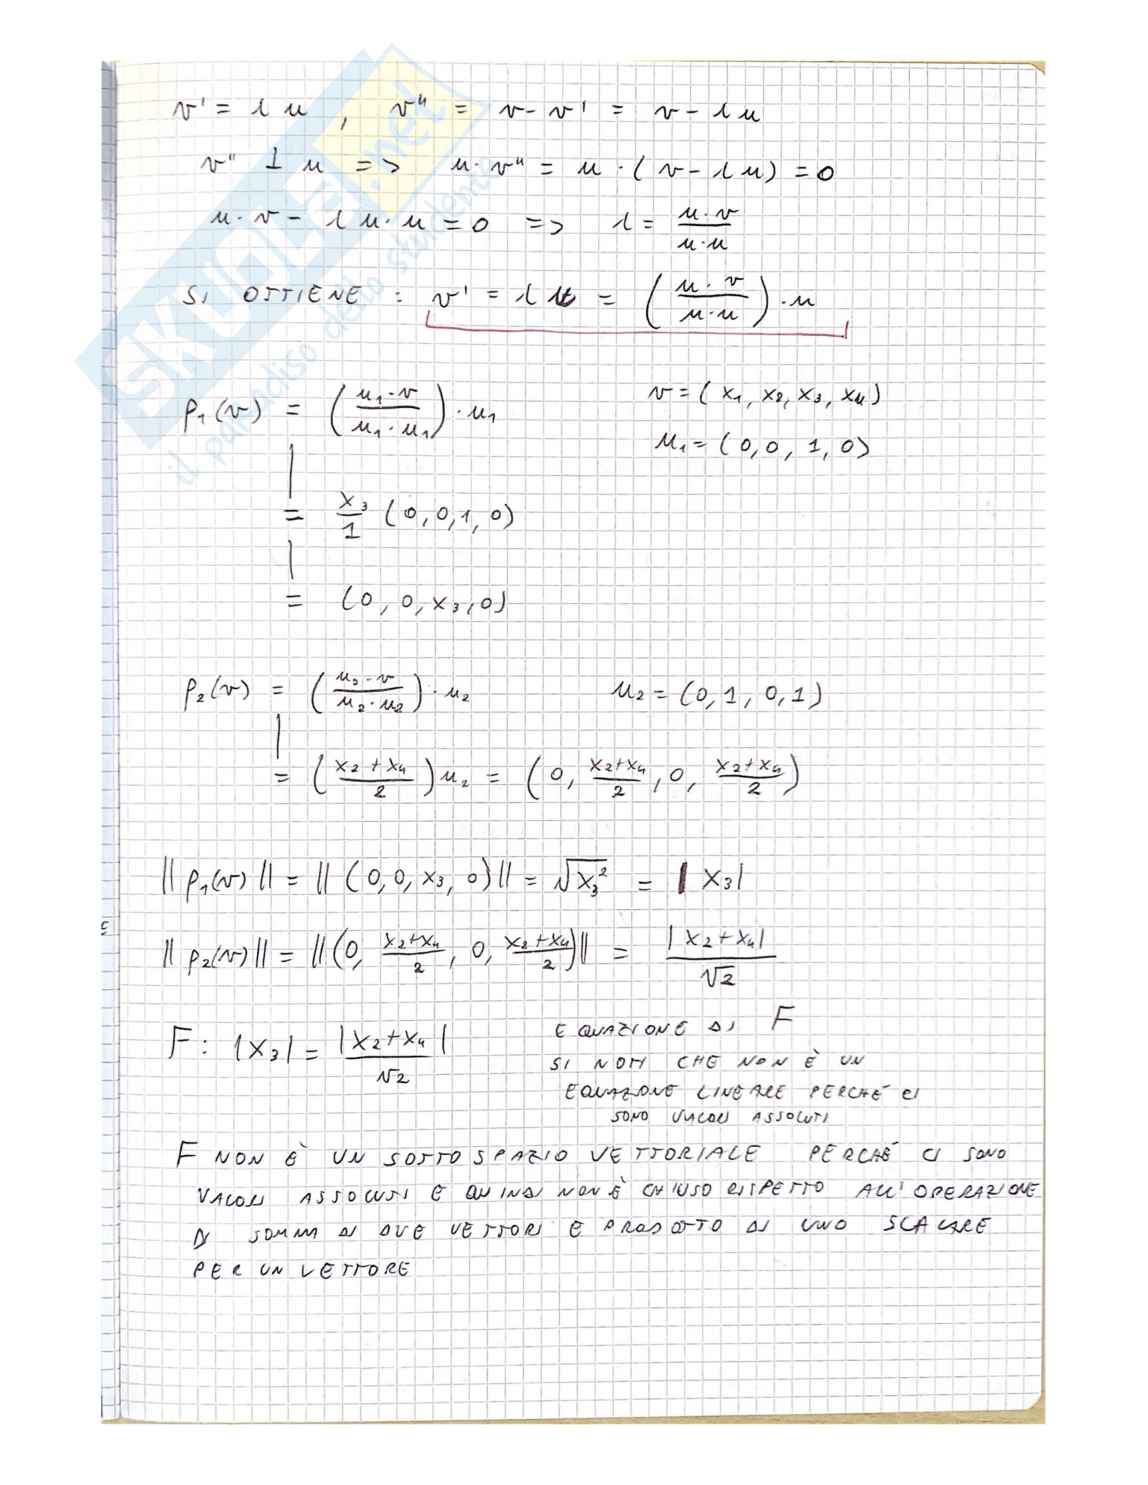 v' = λ u , v" = v - v' = v - λ u
v" ⊥ u => u · v" = u · ( v - λ u ) = 0
u · v - λ u · u = 0 => λ = u · v / u · u
SI OTTIENE : v' = λ u = ( u · v / u · u ) · u
p₁(v) = ( u₁ · v / u₁ · u₁ ) · u₁ v = ( x₁, x₂, x₃, x₄ )
u₁ = ( 0, 0, 1, 0 )
= x₃/1 ( 0, 0, 1, 0 )
= ( 0, 0, x₃, 0 )
p₂(v) = ( u₂ · v / u₂ · u₂ ) · u₂ u₂ = ( 0, 1, 0, 1 )
= ( x₂ + x₄ / 2 ) u₂ = ( 0, x₂+x₄ / 2, 0, x₂+x₄ / 2 )
|| p₁(v) || = || ( 0, 0, x₃, 0 ) || = √x₃² = | x₃ |
|| p₂(v) || = || ( 0, x₂+x₄ / 2, 0, x₂+x₄ / 2 ) || = | x₂ + x₄ | / √2
F : | x₃ | = | x₂ + x₄ | / √2
EQUAZIONE DI F
SI NOTI CHE NON È UN
EQUAZIONE LINEARE PERCHÉ CI
SONO VALORI ASSOLUTI
F NON È UN SOTTOSPAZIO VETTORIALE PERCHÉ CI SONO
VALORI ASSOLUTI E QUINDI NON È CHIUSO RISPETTO ALL'OPERAZIONE
DI SOMMA DI DUE VETTORI E PRODOTTO DI UNO SCALARE
PER UN VETTORE
SKUOLA.net
il paradiso dello studente